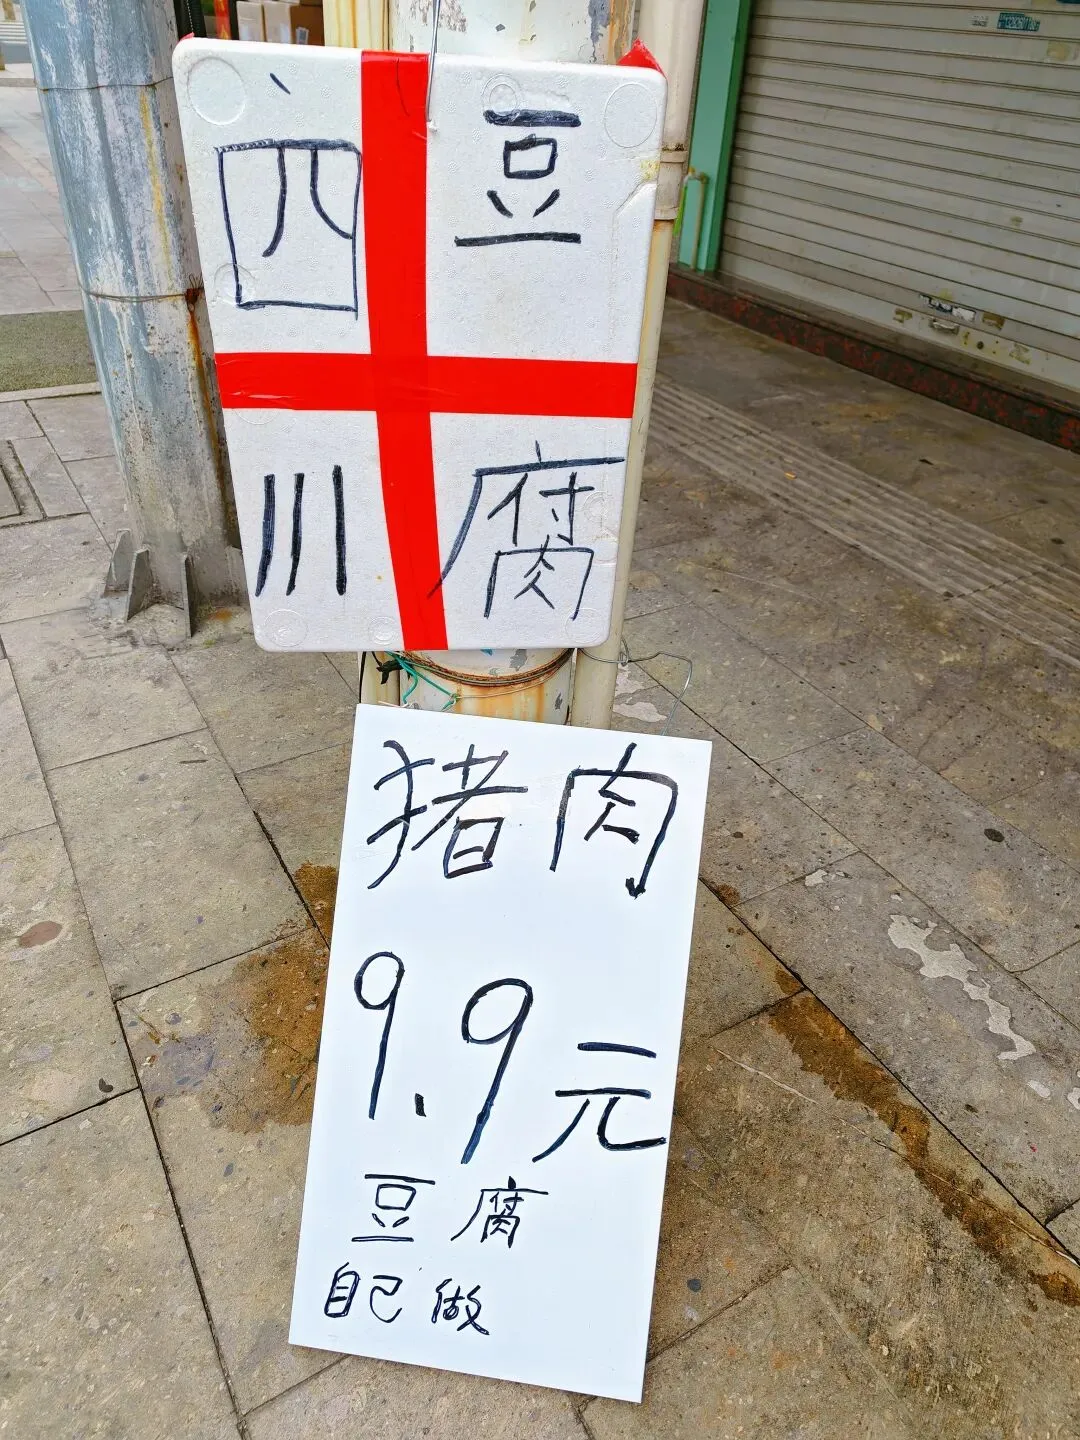 四川
豆腐
猪肉
9.9元
豆腐
自己做